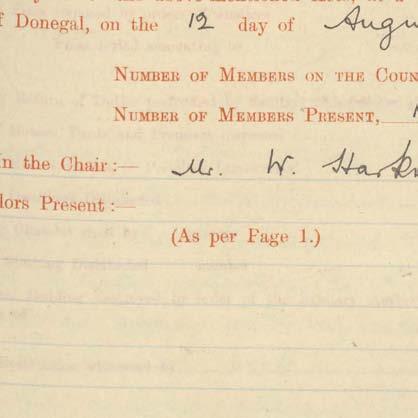 f Donegal, on the 12 day of Augu
NUMBER OF MEMBERS ON THE COUN
NUMBER OF MEMBERS PRESENT,
In the Chair :— Mr. W. Hark
lors Present :—
(As per Page 1.)